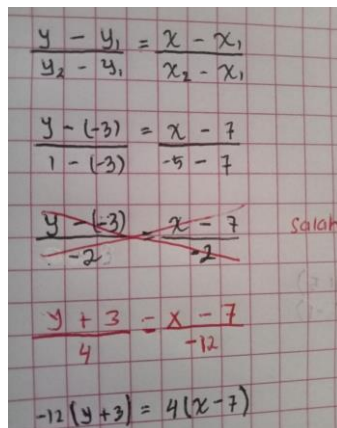 y - y₁ / y₂ - y₁ = x - x₁ / x₂ - x₁
y - (-3) / 1 - (-3) = x - 7 / -5 - 7
y - (-3) / -2 = x - 7 / -2 Salah
y + 3 / 4 = x - 7 / -12
-12 (y+3) = 4(x-7)